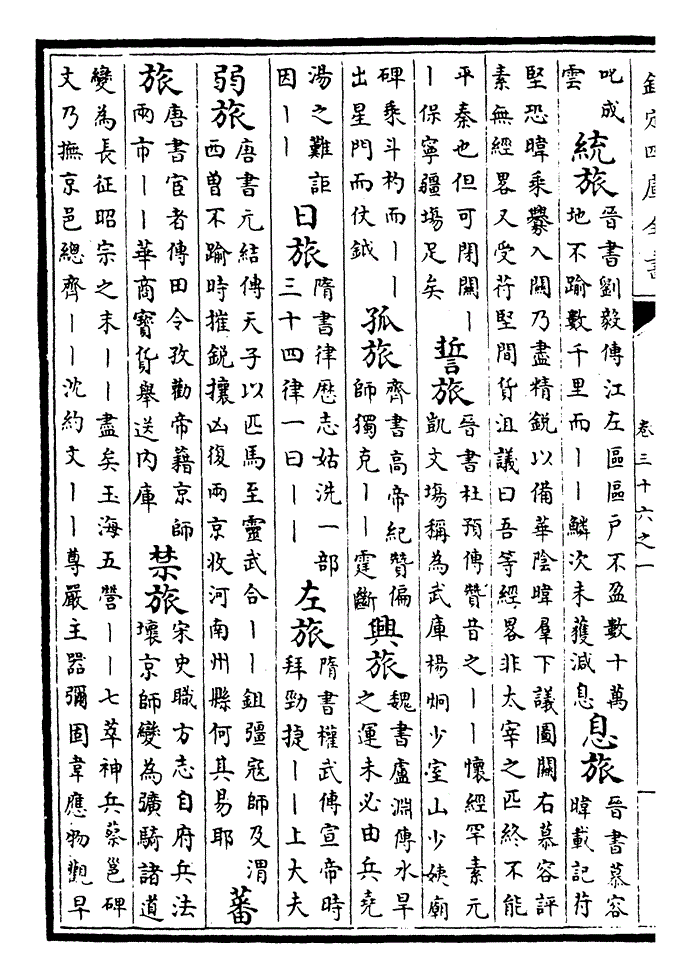 欽定四庫全書
卷三十六之一
叱成
雲
統旅
晉書劉毅傳江左區區户不盈數十萬
地不踰數千里而丨丨鱗次未獲減息
息旅
晉書慕容
暐載記苻
堅恐暐乘釁入關乃盡精鋭以備華陰暐羣下議圖關右慕容評
素無經畧又受苻堅間貨沮議曰吾等經畧非太宰之匹終不能
平秦也但可閉關丨
丨保寧疆埸足矣
誓旅
晉書杜預傳贊昔之丨丨懷經罕素元
凱文塲稱為武庫楊炯少室山少姨廟
碑乘斗杓而丨丨
出星門而仗鉞
孤旅
齊書高帝紀贊偏
師獨克丨丨霆斷
興旅
魏書盧淵傳水旱
之運未必由兵堯
湯之難詎
因丨丨
日旅
隋書律歷志姑洗一部
三十四律一曰丨丨
左旅
隋書權武傳宣帝時
拜勁捷丨丨上大夫
弱旅
唐書元結傳天子以匹馬至靈武合丨丨鉏彊寇師及渭
西曽不踰時摧鋭攘凶復兩京收河南州縣何其易耶
蕃
旅
唐書宦者傳田令孜勸帝籍京師
兩市丨丨華商寳貨舉送内庫
禁旅
宋史職方志自府兵法
壞京師變為彍騎諸道
變為長征昭宗之末丨丨盡矣玉海五營丨丨七萃神兵蔡邕碑
文乃撫京邑總齊丨丨沈約文丨丨尊嚴主器彌固韋應物觀早